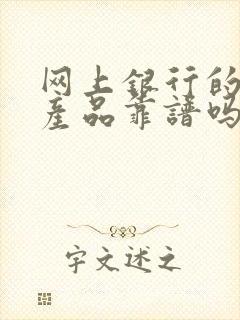 网上银行的
产品靠谱吗
字文述之